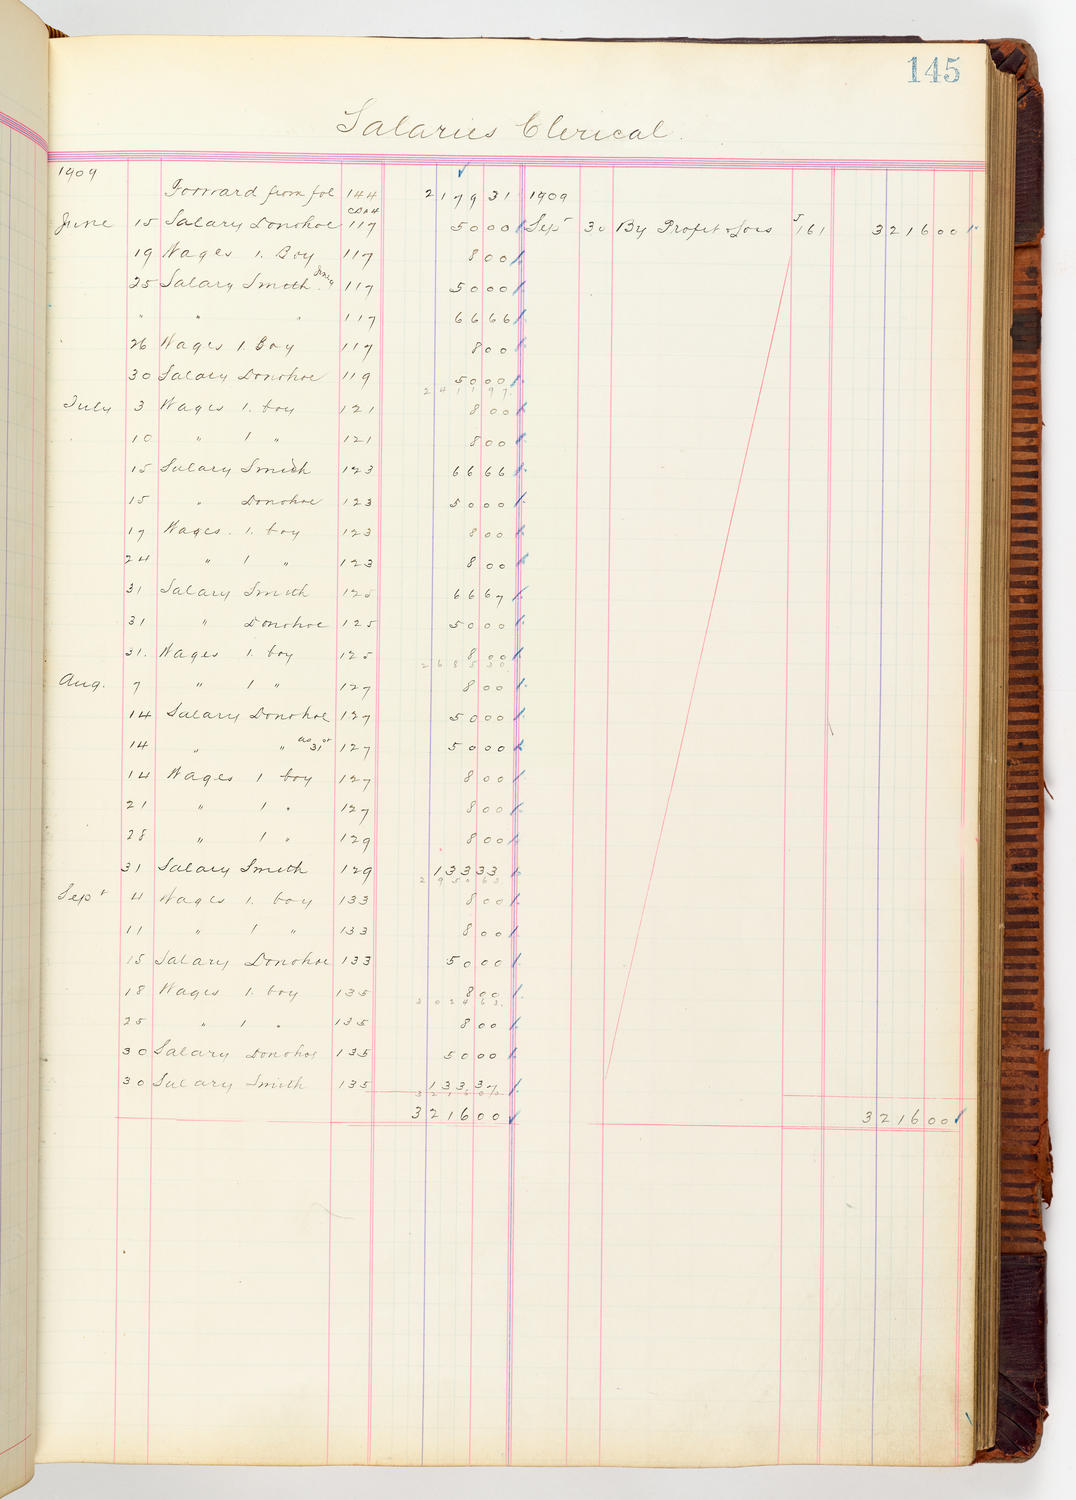 145
Salaries Clerical.
1909
Forward from fol 144 2179 31 1909
CD #4
June 15 Salary Donohoe 117 50 00 Sept 30 By Profit & Loss J 161 3216 00
19 Wages 1. Boy 117 8 00
25 Salary Smith 117 50 00
" " " 117 66 66
26 Wages 1. Boy 117 8 00
30 Salary Donohoe 119 50 00
2411 97
July 3 Wages 1. boy 121 8 00
10 " 1 " 121 8 00
15 Salary Smith 123 66 66
15 " Donohoe 123 50 00
17 Wages. 1. boy 123 8 00
24 " 1 " 123 8 00
31 Salary Smith 125 66 67
31 " Donohoe 125 50 00
31. Wages 1. boy 125 8 00
2685 30
Aug. 7 " 1 " 127 8 00
14 Salary Donohoe 127 50 00
14 " " 31st 127 50 00
14 Wages 1 boy 127 8 00
21 " 1 " 127 8 00
28 " 1 " 129 8 00
31 Salary Smith 129 133 33
2950 63
Sept 4 Wages 1. boy 133 8 00
11 " 1 " 133 8 00
15 Salary Donohoe 133 50 00
18 Wages 1. boy 135 8 00
3024 63
25 " 1 " 135 8 00
30 Salary Donohoe 135 50 00
30 Salary Smith 135 133 37
3216 00
3216 00 3216 00